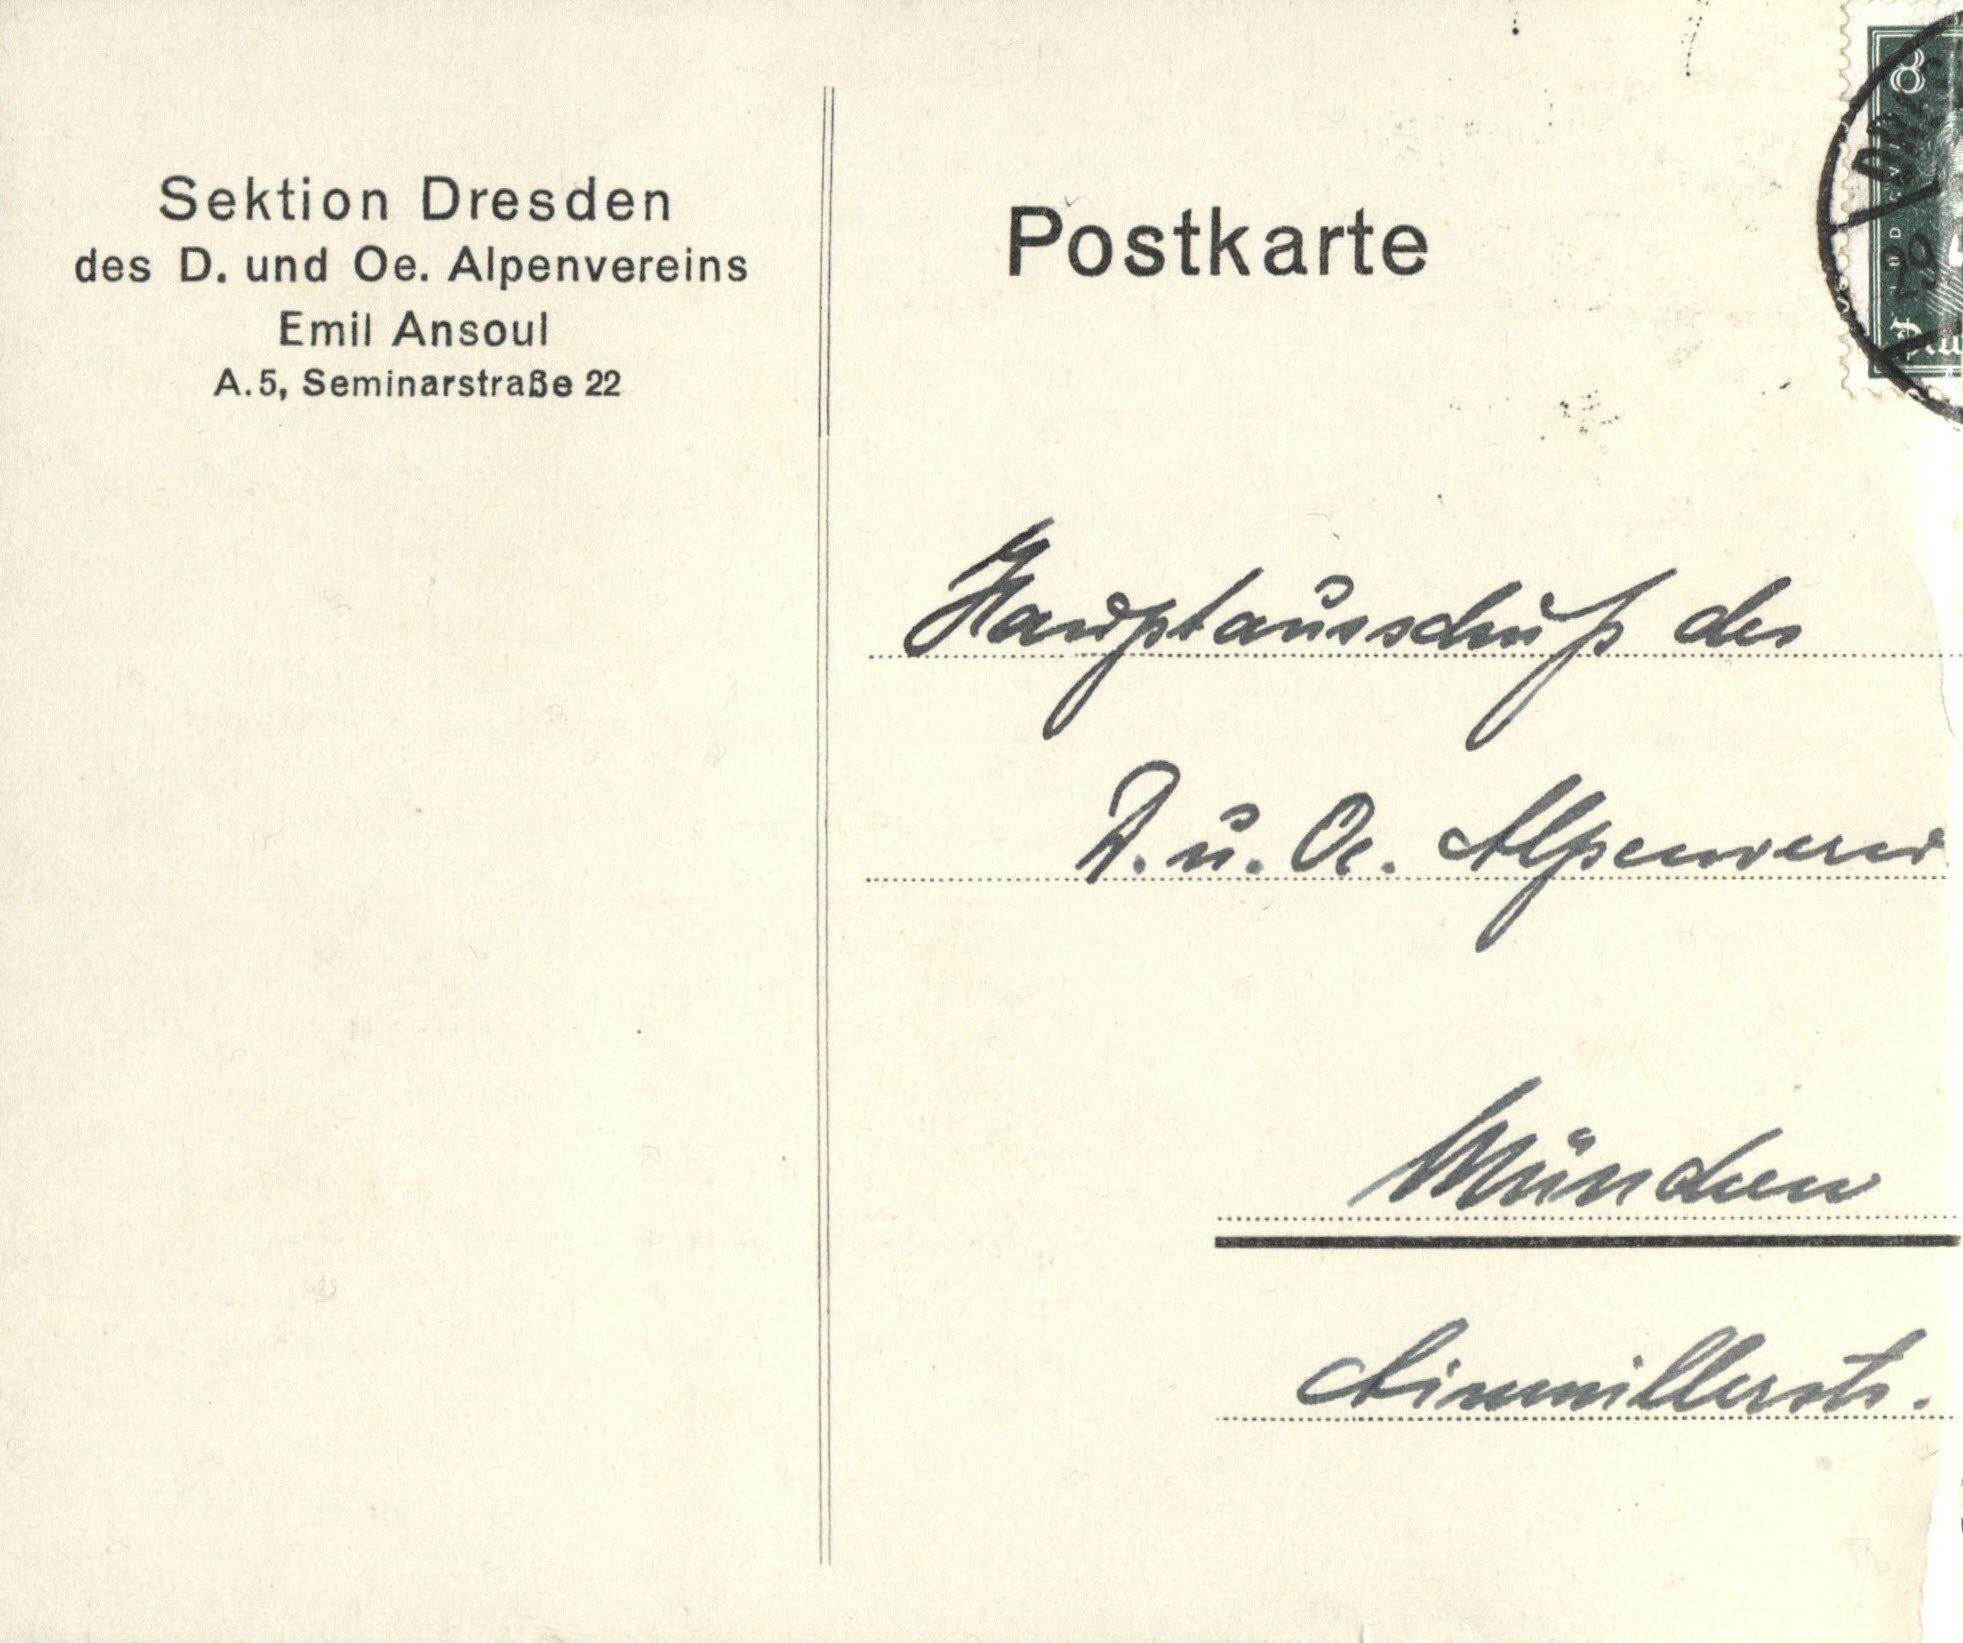 Sektion Dresden
des D. und Oe. Alpenvereins
Emil Ansoul
A. 5, Seminarstraße 22
Postkarte
8
Hauptausschuß des
D. u. Oe. Alpenverein
München
Ainmillerstr.